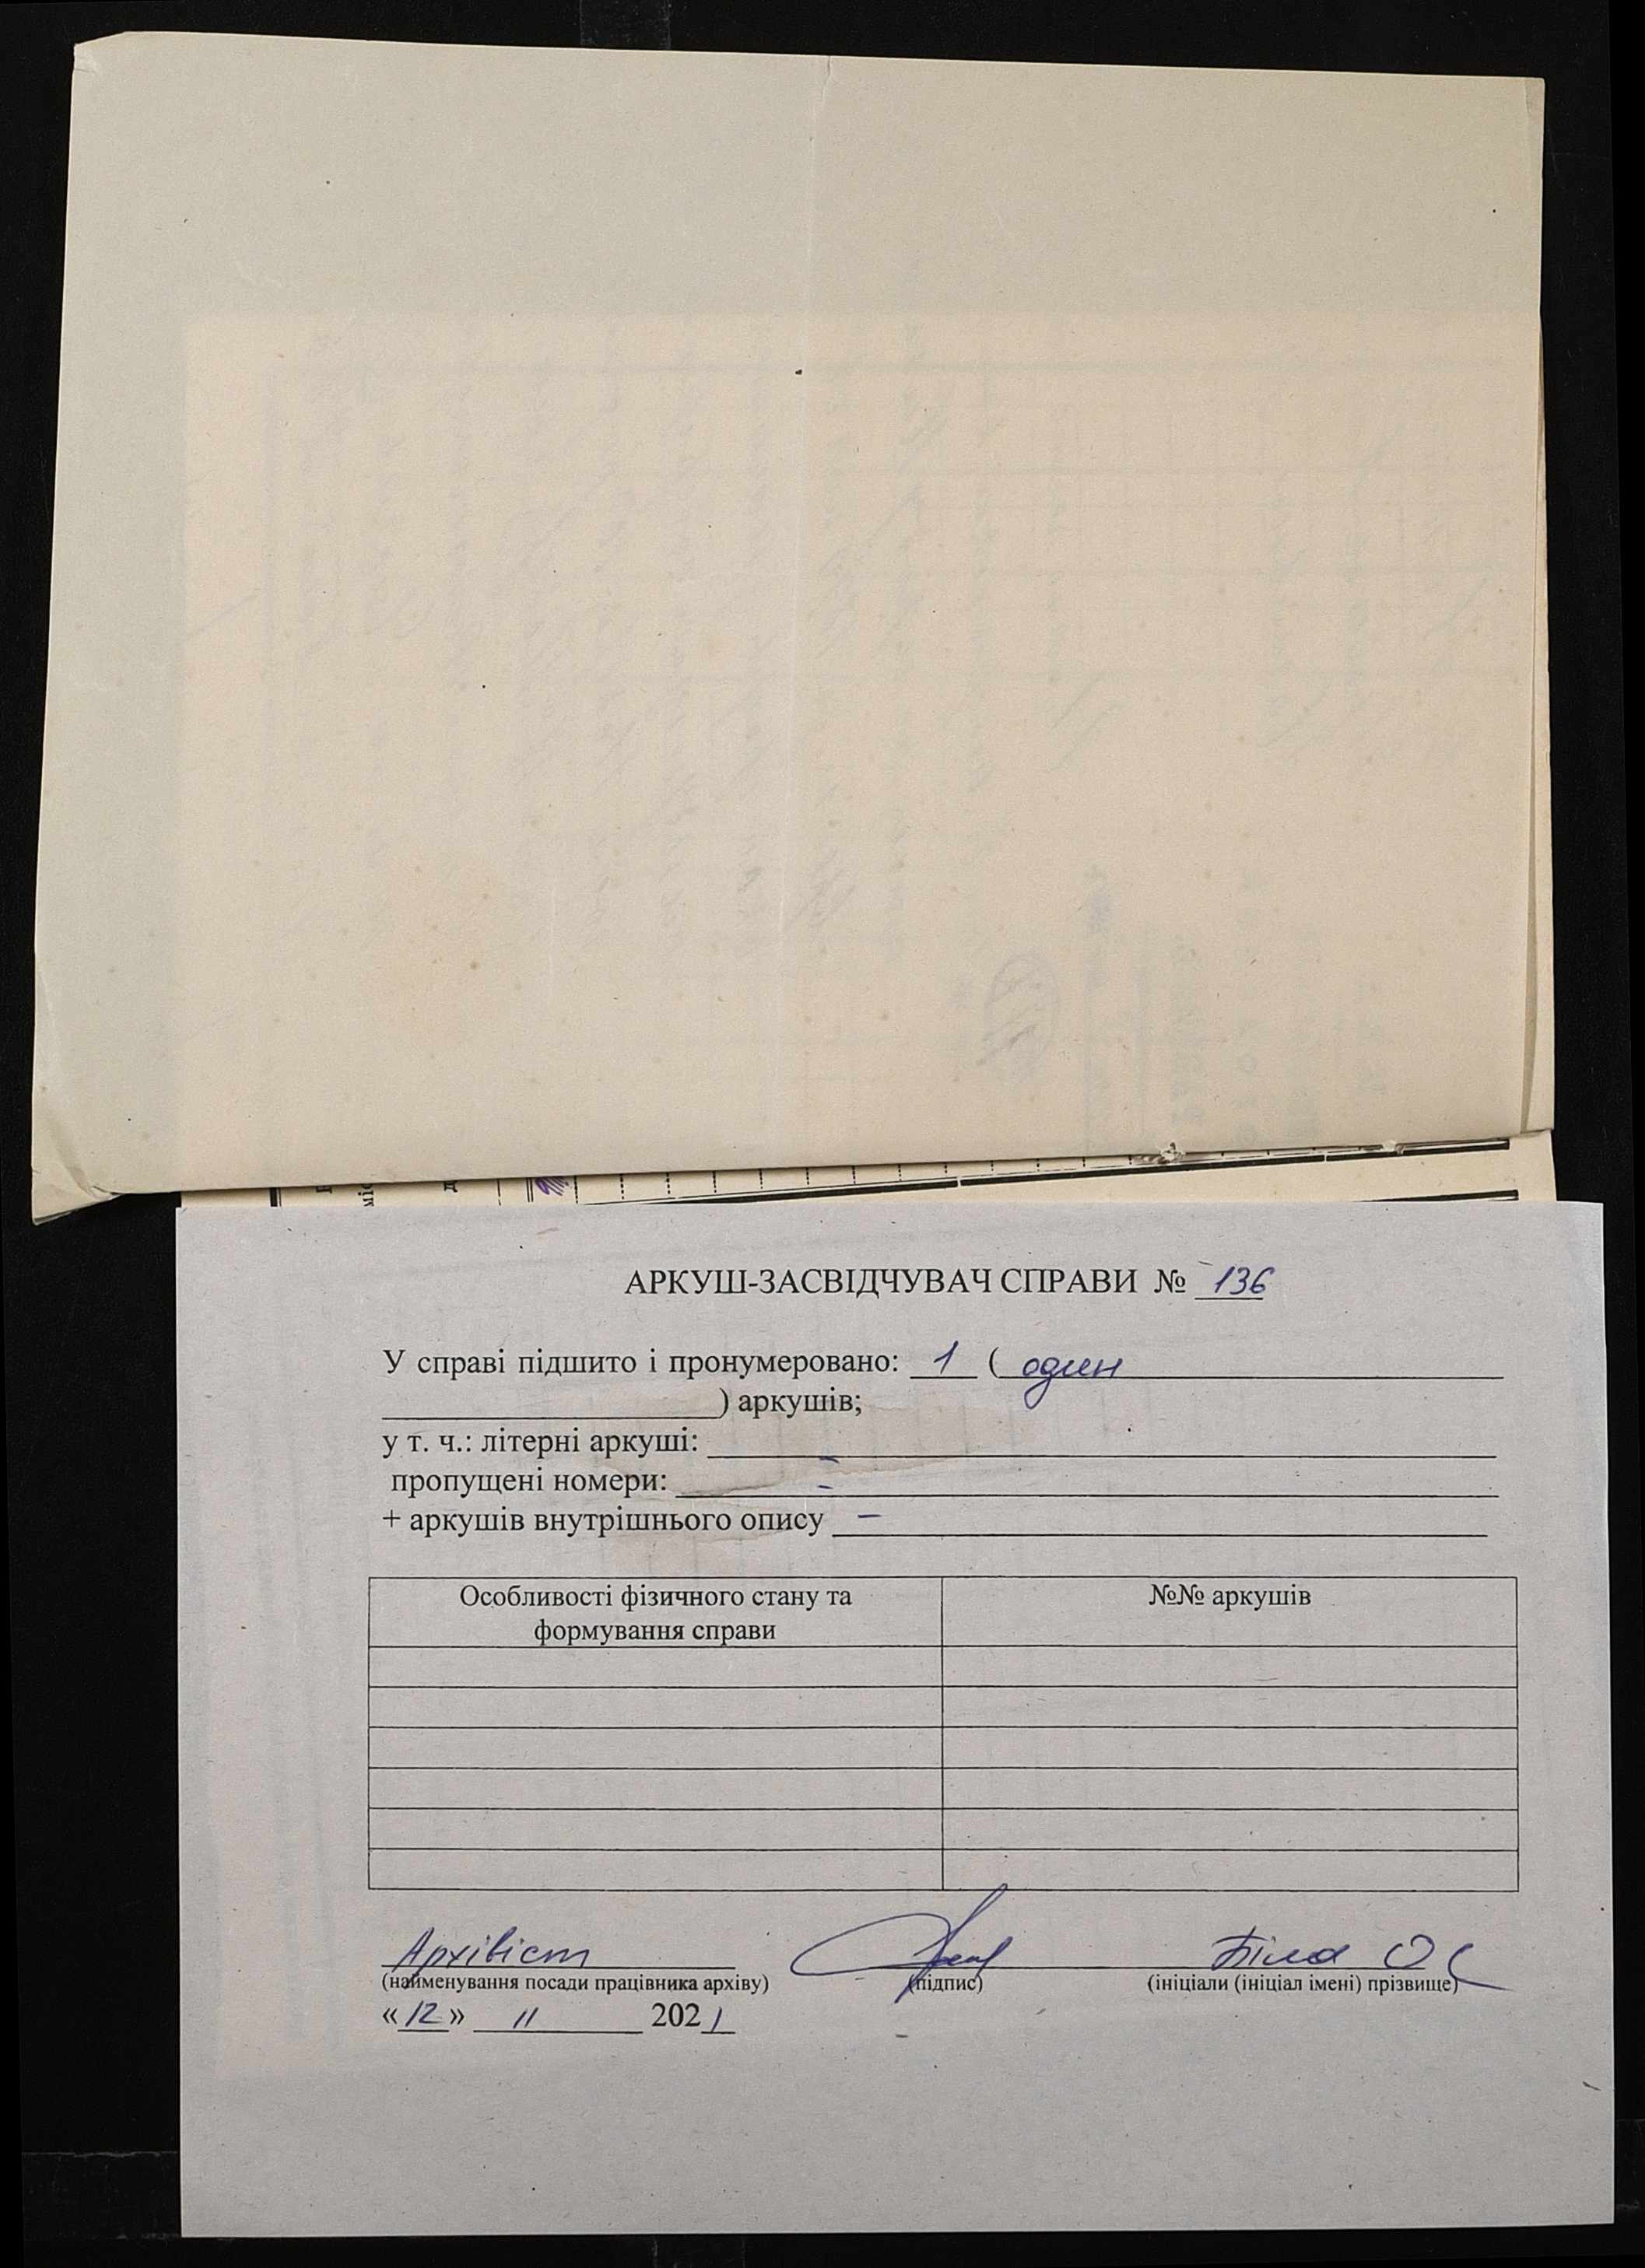 АРКУШ-ЗАСВІДЧУВАЧ СПРАВИ № 136
У справі підшито і пронумеровано: 1 ( один
) аркушів;
у т. ч.: літерні аркуші: -
пропущені номери: -
+ аркушів внутрішнього опису –
Особливості фізичного стану та формування справи
№№ аркушів
Архівіст Біла О С
(найменування посади працівника архіву) (підпис) (ініціали (ініціал імені) прізвище)
«12» 11 2021